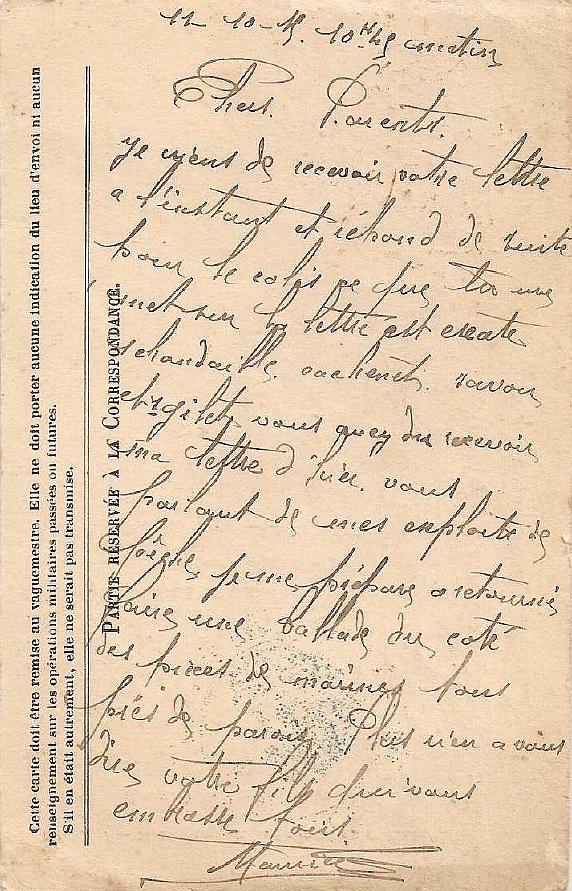 Cette carte doit être remise au vaguemestre. Elle ne doit porter aucune indication du lieu d'envoi ni aucun
renseignement sur les opérations militaires passées ou futures.
S'il en était autrement, elle ne serait pas transmise.
PARTIE RÉSERVÉE À LA CORRESPONDANCE.
11-10-15. 10 H 45 matin
Chers Parents.
je viens de recevoir votre lettre
a l'instant et répond de suite
pour le colis ce que tu me
met sur la lettre est exacte
cachenet. savon
et gilet vous avez du recevoir
ma lettre d'hier vous
parlant de mes exploits de
je me prépare a retourné
faire une ballade du coté
des pièces de marines tous
près de Plus rien a vous
dire votre fils qui vous
embrasse tous.
Maurice